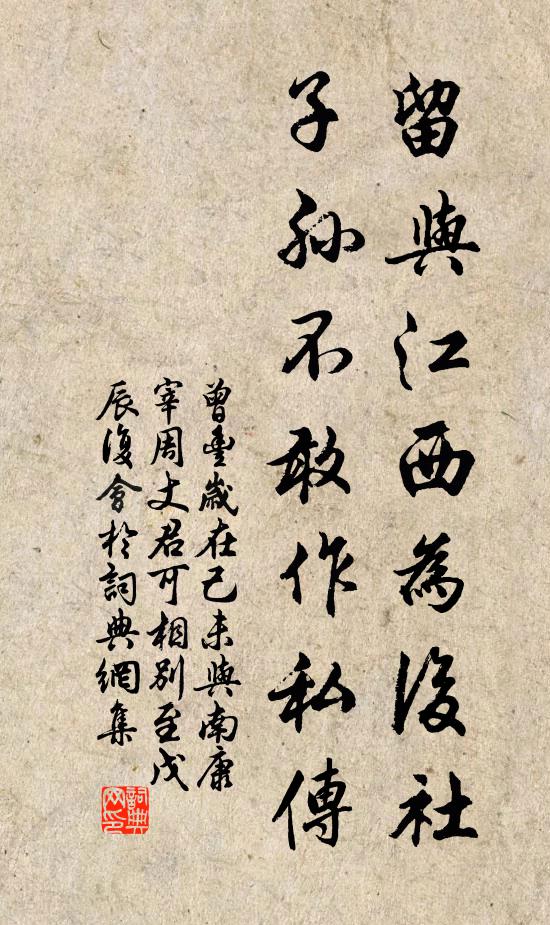 留與江西為後社
子孫不敢作私傳
曾豐歲在己未與南康
宰周丈君可相別至戊
辰復會於詞典網集
詞典网印